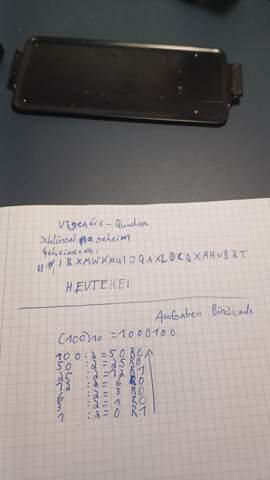 Vigenère-Quadrat
Schlüssel: geheim
Geheimtext:
HEUTEKEI
Aufgaben Binärcode
(100)10 = 1000100
100:2=50 R0
50:2=25 R0
25:2=12 R1
12:2=6 R0
6:2=3 R0
3:2=1 R0
1:2=0 R1